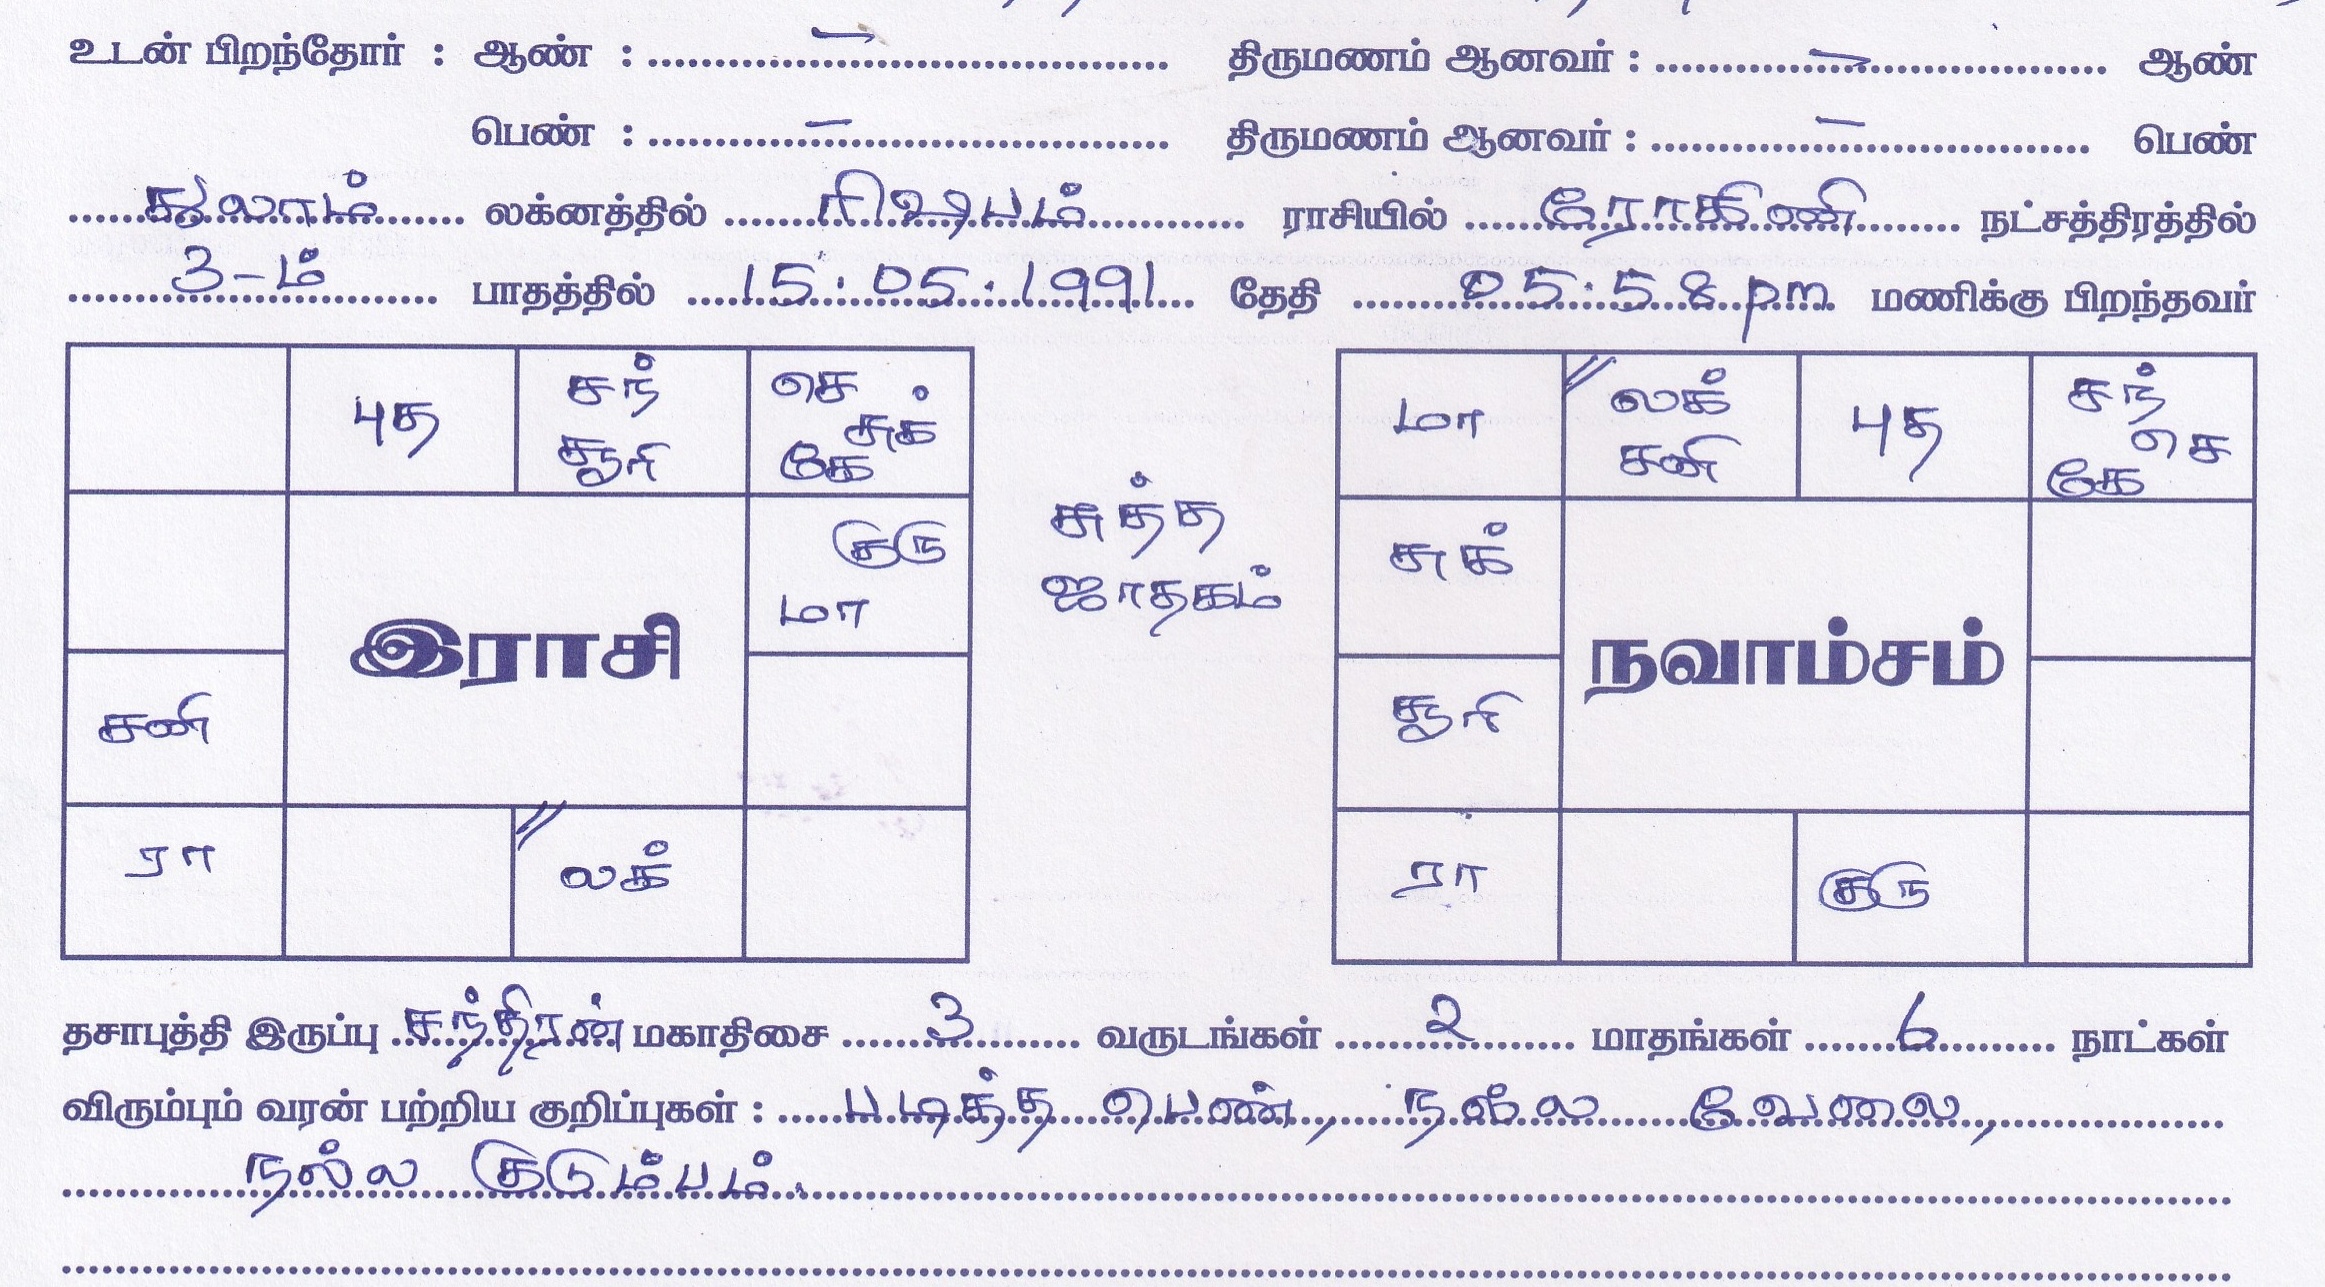 உடன் பிறந்தோர் : ஆண் : – திருமணம் ஆனவர் : – ஆண்
பெண் : – திருமணம் ஆனவர் : – பெண்
துலாம் லக்னத்தில் ரிஷபம் ராசியில் ரோகிணி நட்சத்திரத்தில்
3-ம் பாதத்தில் 15.05.1991 தேதி 05.58 pm மணிக்கு பிறந்தவர்
புத சந் சூரி செ சுக் கே
குரு மா
சனி
ரா லக்
இராசி
சுத்த
ஜாதகம்
மா லக் சனி புத சந் செ கே
சுக்
சூரி
ரா குரு
நவாம்சம்
தசாபுத்தி இருப்பு சந்திரன் மகாதிசை 3 வருடங்கள் 2 மாதங்கள் 6 நாட்கள்
விரும்பும் வரன் பற்றிய குறிப்புகள் : படித்த பெண், நல்ல வேலை,
நல்ல குடும்பம்.